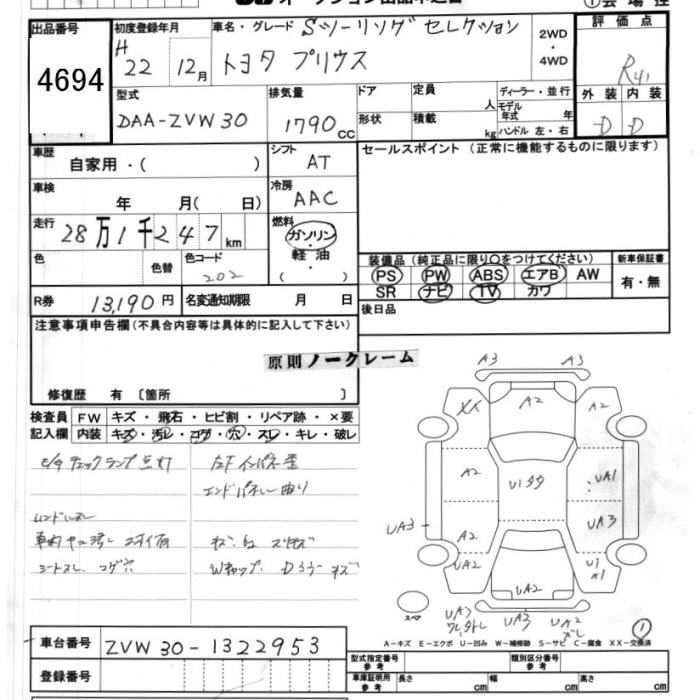 出品番号
4694
初度登録年月
H 22 12月
車名・グレード Sツーリングセレクション
トヨタ プリウス
2WD
・
4WD
評価点
外装 内装
D D
型式
DAA-ZVW30
排気量
1790 CC
ドア
形状
定員 人
積載 kg
ディーラー・並行
モデル年式 年
ハンドル 左・右
車歴
自家用・( )
シフト
AT
セールスポイント (正常に機能するものに限ります)
車検
年 月( 日)
冷房
AAC
走行
28万1千247km
燃料
ガソリン
・
軽油
・
( )
色
色替
色コード
202
装備品 (純正品に限り○をつけてください)
PS PW ABS エアB AW
SR ナビ TV カワ
新車保証書
有・無
R券 13,190円
名変通知期限 月 日
後日品
注意事項申告欄(不具合内容等は具体的に記入して下さい)
修復歴 有 〔箇所 〕
原則ノークレーム
検査員記入欄
FW キズ・飛石・ヒビ割・リペア跡・×要
内装 キズ・汚レ・コゲ・穴・スレ・キレ・破レ
E/gチェックランプ点灯
左Fインパネ歪
エンドパネル曲り
ハンドルスレ
シートスレ コゲ穴
A3 A3
XX A2 A2
A2 UA1
UA3 UA3
UA2 U1 A1
UA2
UA3 UA3 UA2
スペア
①
A－キズ E－エクボ U－凹み W－補修跡 S－サビ C－腐食 XX－交換済
車台番号 ZVW30-1322953
登録番号
型式指定番号
参考
類別区分番号
参考
車庫証明用
参考
長さ cm 幅 cm 高さ cm